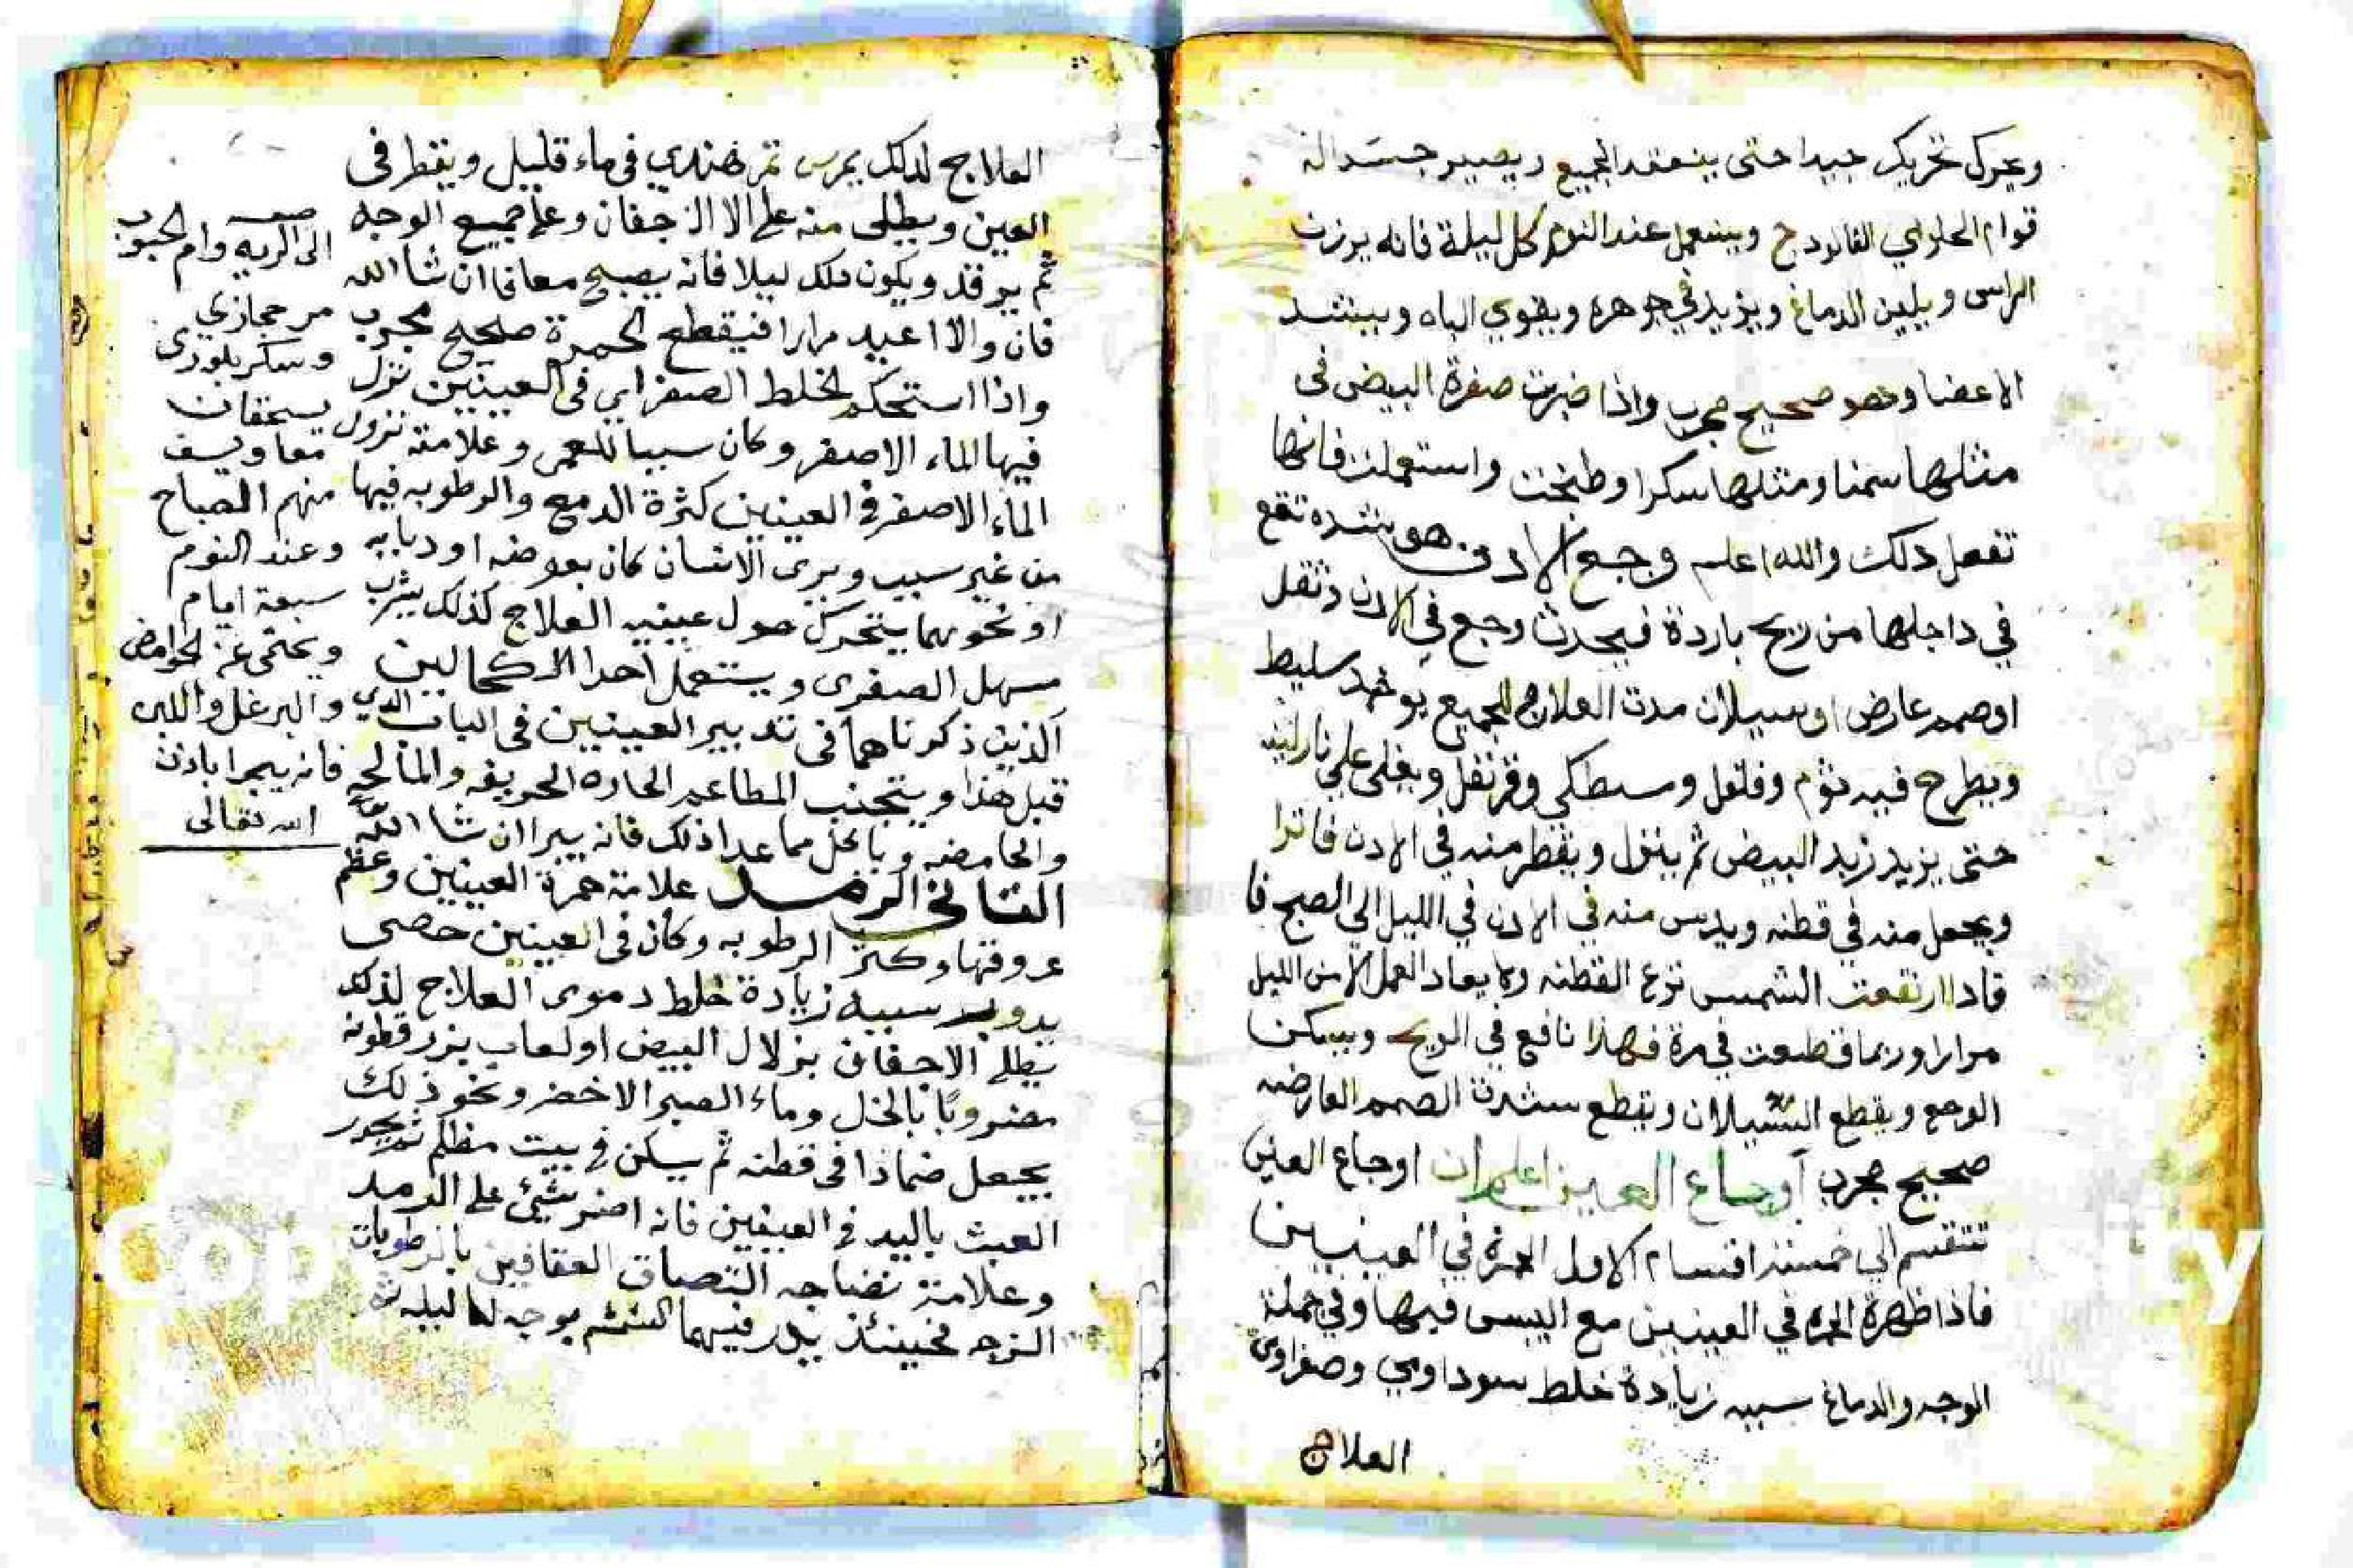 ويحرك تحريك جيدا حتى ينعقد الجميع ويصير جسدا له
قوام الحلوي الفالودج ويستعمل عند النوم كل ليلة فانه يرزن
الراس ويلين الدماغ ويزيد في جوهره ويقوي الباه ويشد
الاعضا وهو صحيح مجرب واذا ضربت صفرة البيض في
مثلها سمنا ومثلها سكرا وطبخت واستعملت فانها
تفعل ذلك والله اعلم وجع الادن هو شده تقع
في داخلها من ريح باردة فيحدث وجع في الادن وثقل
او صمم عارض او سيلان مدت العلاج للجميع يوخذ سليط
ويطرح فيه ثوم وفلفل ومسطكي وقرنفل ويغلى على نار لينه
حتى يزيد زبد البيض ثم ينزل ويقطر منه في الادن فاترا
ويجعل منه في قطنه ويدس منه في الادن في الليل الى الصبح فا
فادا ارتفعت الشمس نزع القطنه ولا يعاد العمل الا من الليل
مرارا وربما قطعت في مرة فهذا نافع في الريح ويسكن
الوجع ويقطع السيلان ويقطع سدت الصمم العارضه
صحيح مجرب اوجاع العين اعلم ان اوجاع العين
تنقسم الى خمسة اقسام الاول الحمرة في العينين
فاذا ظهرة الحمره في العينين مع اليبس فيها وفي جملة
الوجه والدماغ سببه زيادة خلط سوداوي وصفراوي
العلاج
العلاج لدلك يمرس تمر هندي في ماء قليل ويقطر في
العين ويطلى منه على الا الاجفان وعلى جميع الوجه
ثم يرقد ويكون دلك ليلا فانه يصبح معافا ان شا الله
فان والا اعيد مرارا فيقطع الحمرة صحيح مجرب
واذا استحكم الخلط الصفراي في العينين نزل
فيها الماء الاصفر وكان سببا للعمى وعلامته نزول
الماء الاصفر في العينين كثرة الدمع والرطوبه فيها
من غير سبب ويرى الانسان كان بعوضه او دبابه
او نحوهما يتحرك حول عينيه العلاج كذلك يشرب
مسهل الصفرى ويستعمل احد الاكحالين
الذين ذكرناهما في تدبير العينين في الباب الدي
قبل هذا ويتجنب المطاعم الحاره الحريفه والمالحه
والحامضه وياكل مما عدا ذلك فانه يبرا ان شا الله
الثاني الرمد علامته حمرة العينين وعظم
عروقها وكثر الرطوبه وكان في العينين حصى
يدور سببه زيادة خلط دموى العلاج لذلك
يطلى الاجفان بزلال البيض او لعاب بزر قطونه
مضروبا بالخل وماء الصبر الاخضر ونحو ذلك
يجعل ضمادا في قطنه ثم يسكن في بيت مظلم ثم يحدر
العبث باليد في العينين فانه اضر شيئ على الرمد
وعلامة نضاجه التصاق بالرطوبات
الزجه فحينئذ يدر فيهما الششم
صفه
الى الريه وام الحبوب
مر حجازي
وسكر بلوري
يسحقان
معا ويسف
منهم الصباح
وعند النوم
سبعة ايام
ويحتمي عن الحوامض
والبرغل واللبن
فانه يبرا بادن
الله تعالى